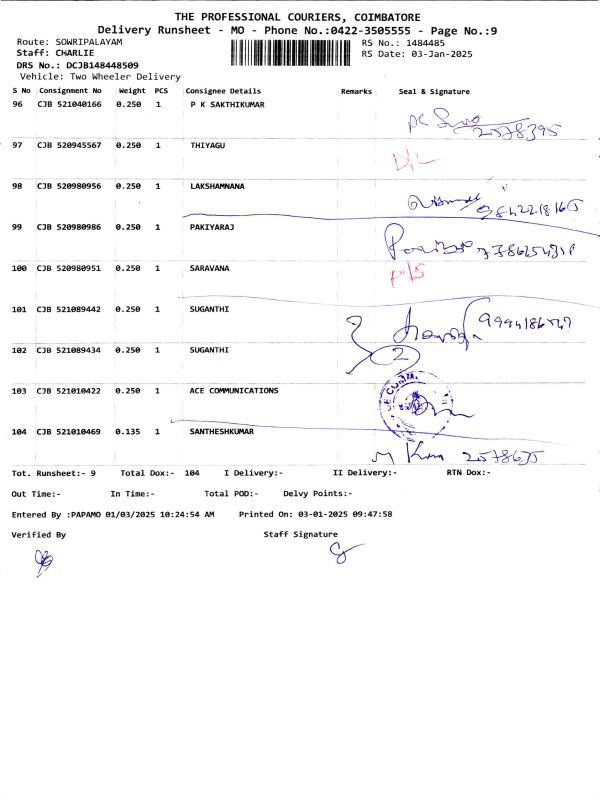 THE PROFESSIONAL COURIERS, COIMBATORE
Delivery Runsheet - MO - Phone No.:0422-3505555 - Page No.:9
Route: SOWRIPALAYAM RS No.: 1484485
Staff: CHARLIE RS Date: 03-Jan-2025
DRS No.: DCJB148448509
Vehicle: Two Wheeler Delivery
S No Consignment No Weight PCS Consignee Details Remarks Seal & Signature
96 CJB 521040166 0.250 1 P K SAKTHIKUMAR
2578395
97 CJB 520945567 0.250 1 THIYAGU
D/L
98 CJB 520980956 0.250 1 LAKSHAMNANA
99 CJB 520980986 0.250 1 PAKIYARAJ
100 CJB 520980951 0.250 1 SARAVANA
P/S
101 CJB 521089442 0.250 1 SUGANTHI
102 CJB 521089434 0.250 1 SUGANTHI
2
103 CJB 521010422 0.250 1 ACE COMMUNICATIONS
104 CJB 521010469 0.135 1 SANTHESHKUMAR
Tot. Runsheet:- 9 Total Dox:- 104 I Delivery:- II Delivery:- RTN Dox:-
Out Time:- In Time:- Total POD:- Delvy Points:-
Entered By :PAPAMO 01/03/2025 10:24:54 AM Printed On: 03-01-2025 09:47:58
Verified By Staff Signature